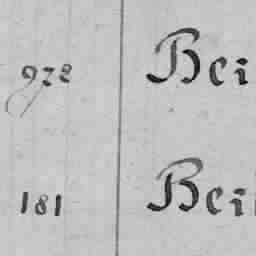 972 Bei
181 Bei